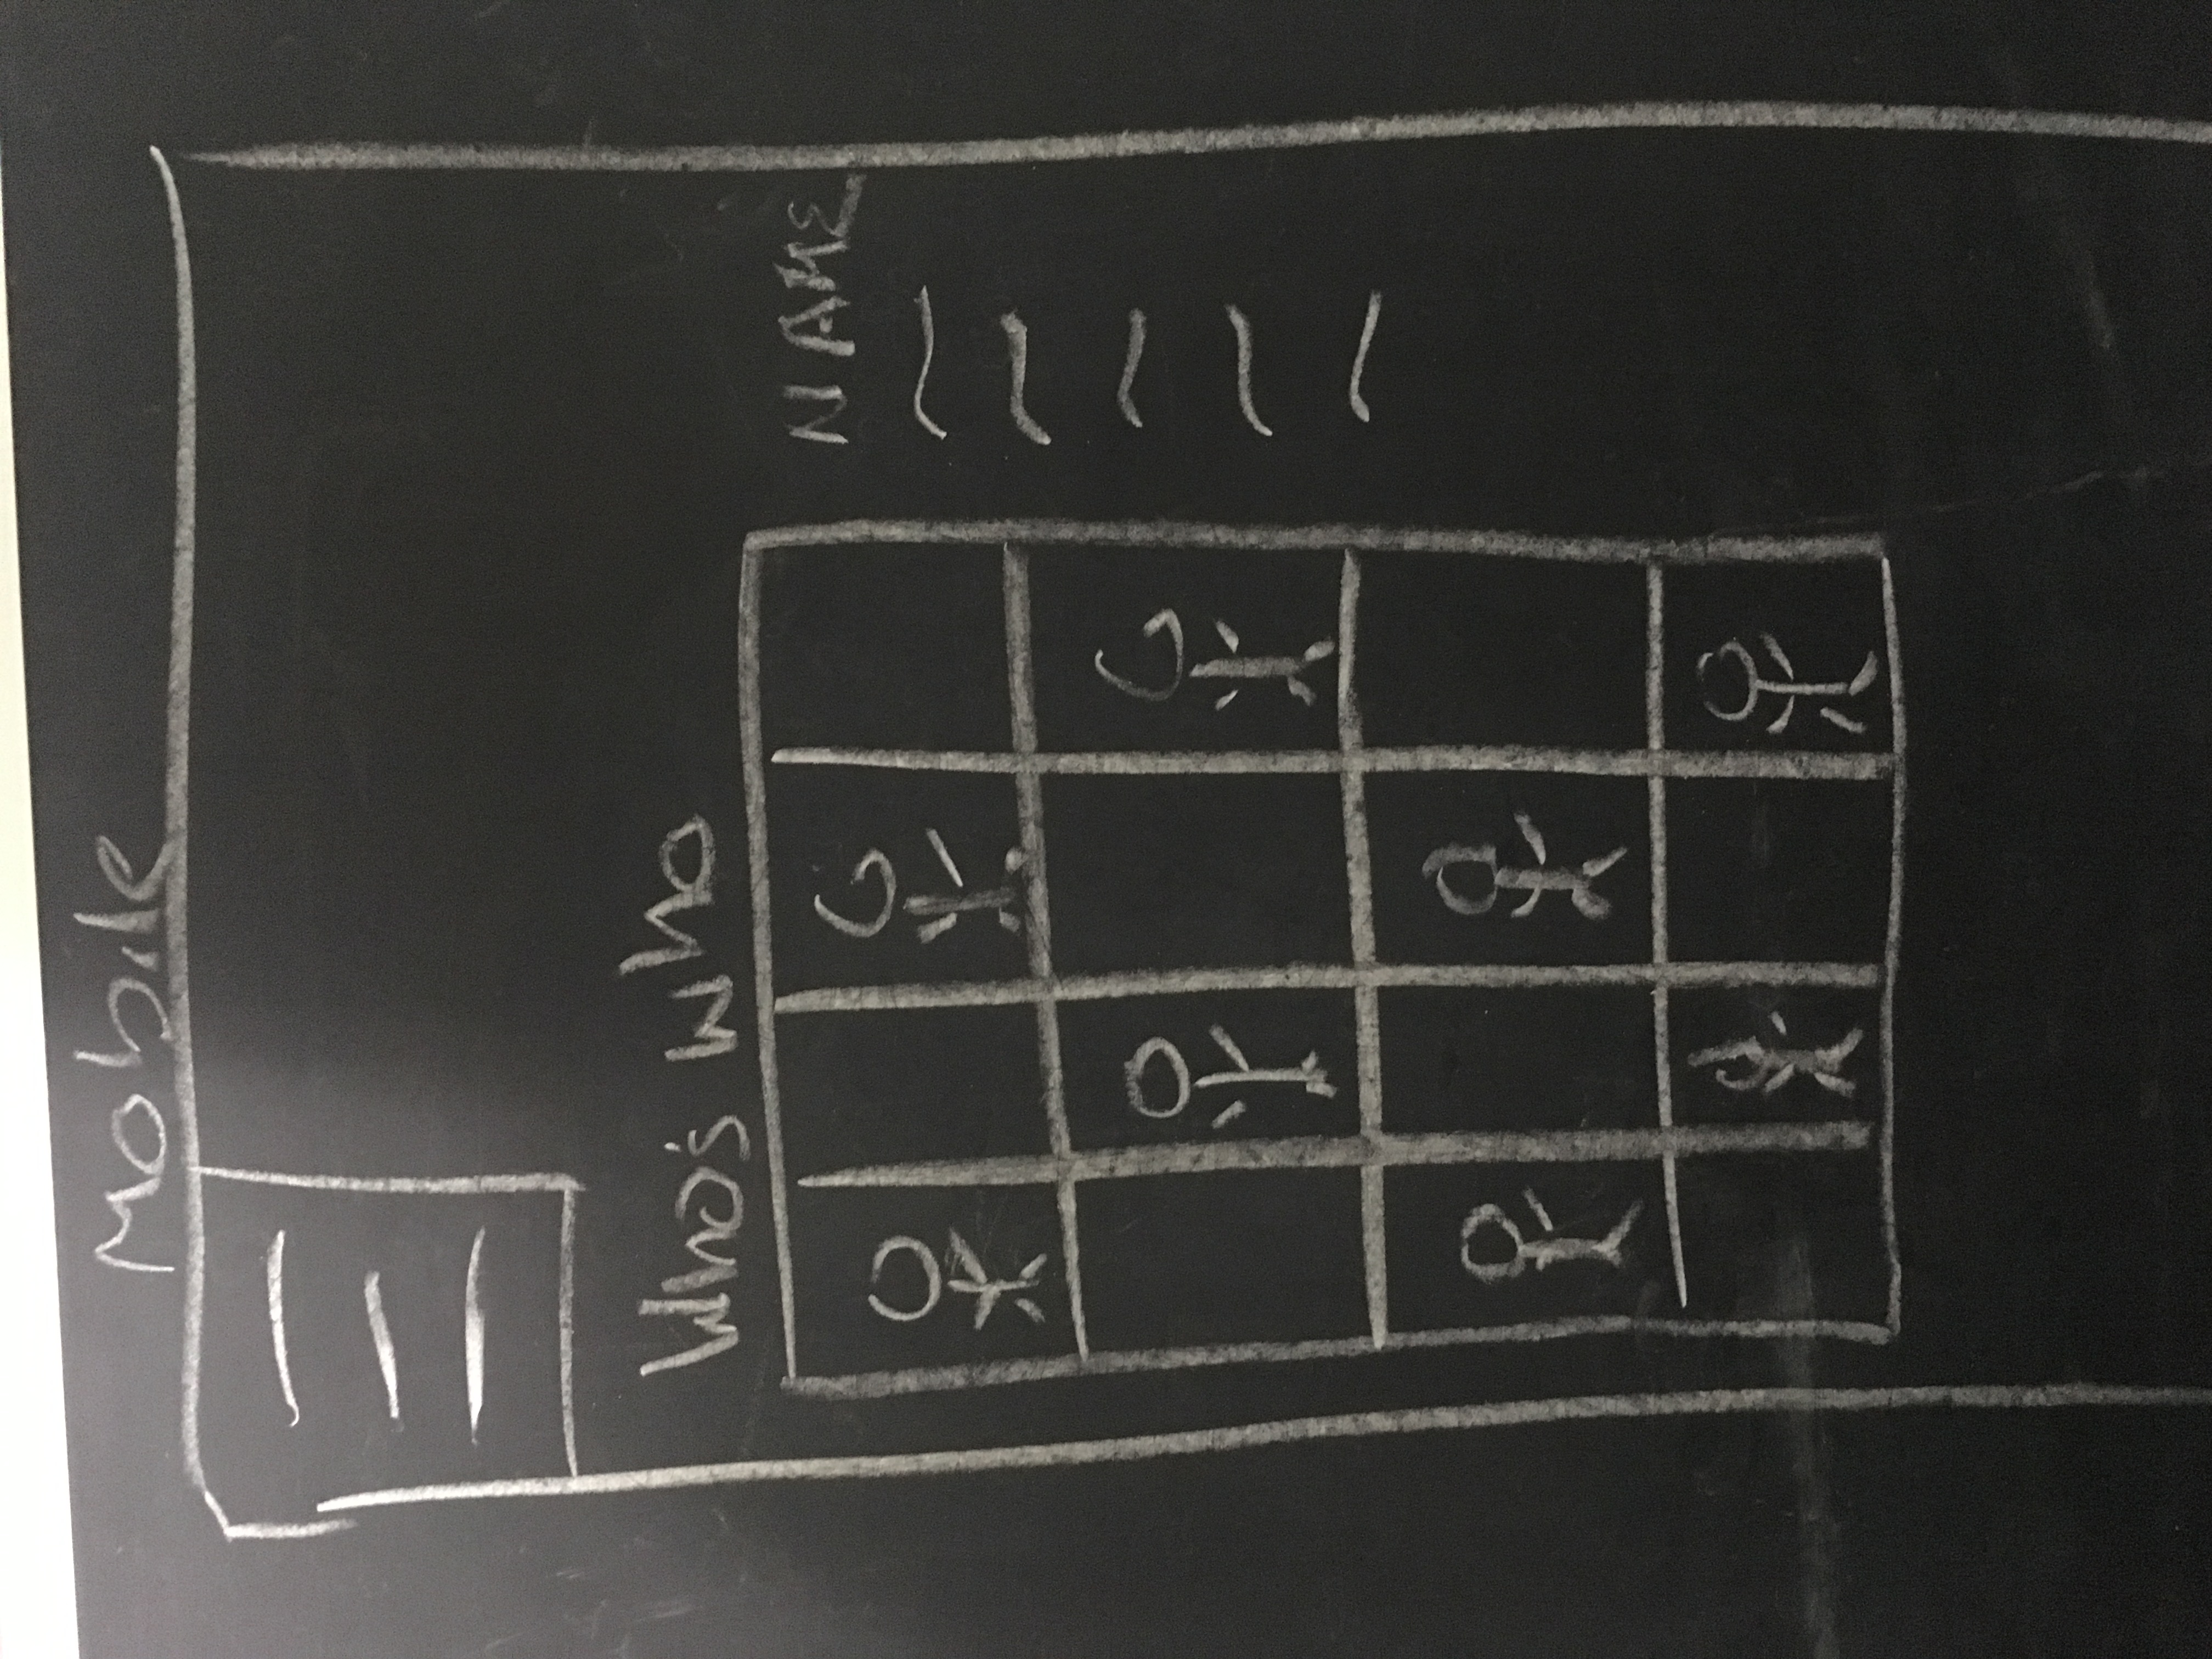 Mobile
Who's who
NAME